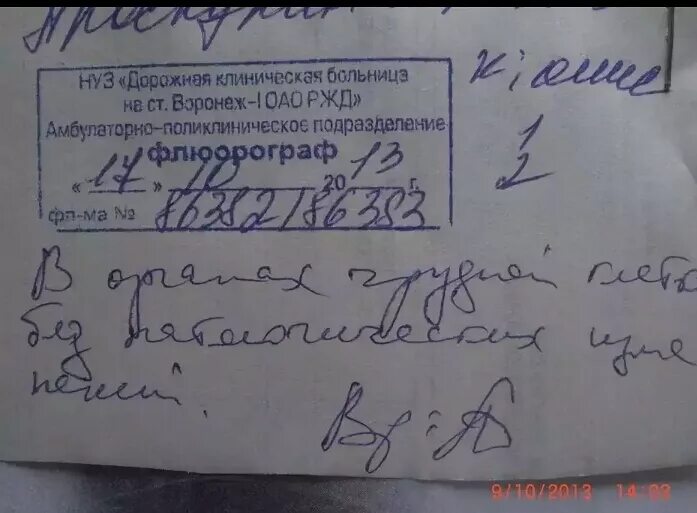 НУЗ «Дорожная клиническая больница
на ст. Воронеж-I ОАО РЖД»
Амбулаторно-поликлиническое подразделение
флюорограф
«17» 10 2013 г.
фл-ма № 86382/86383
1
2
В органах грудной клетк
без патологических изме
нений.
Вр:
9/10/2013 14:23